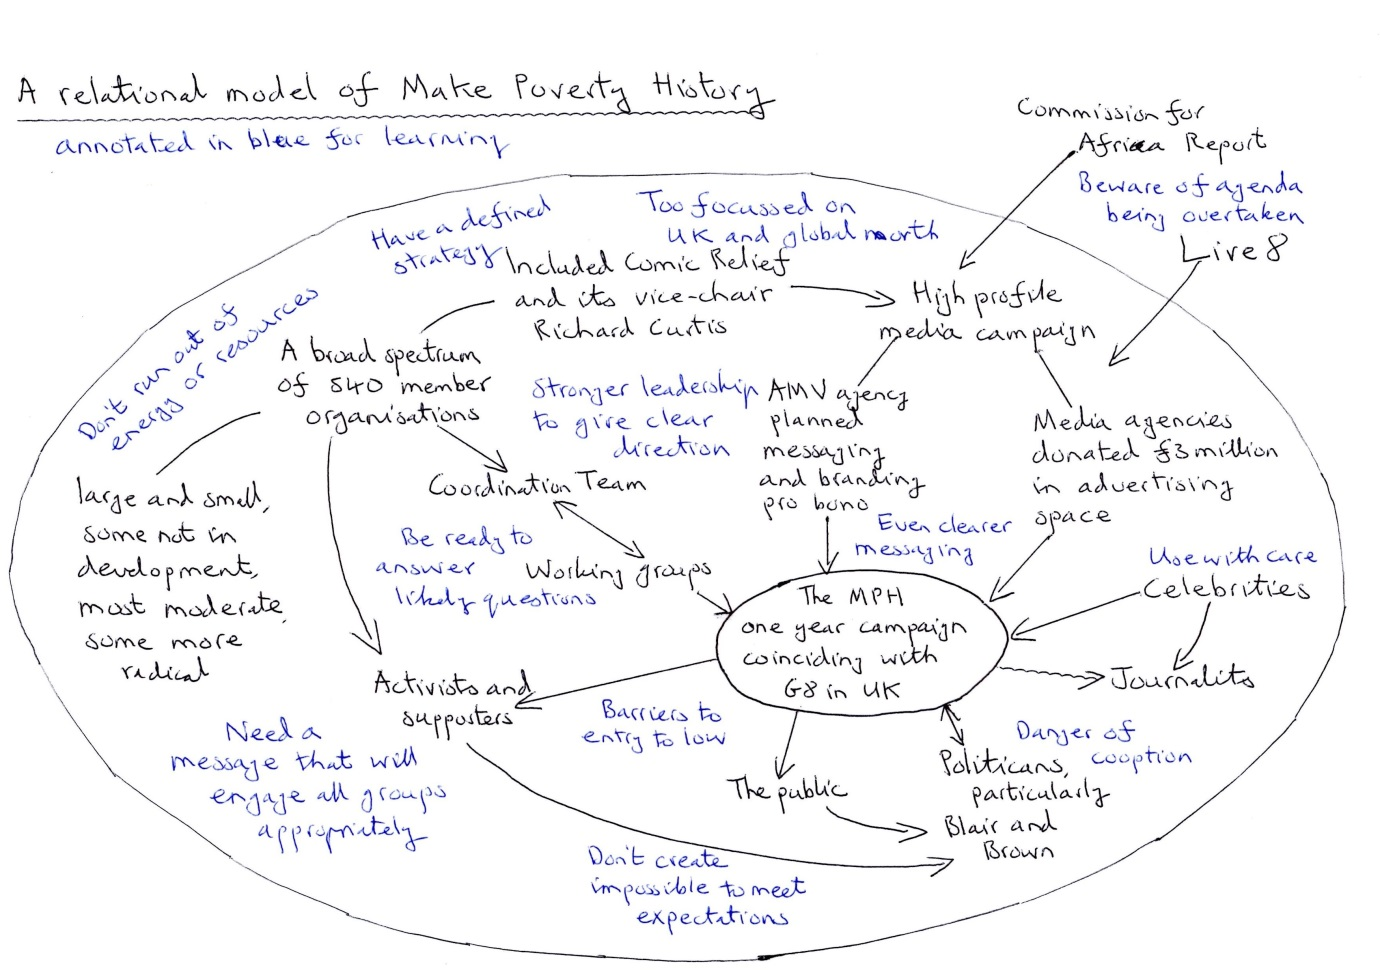 A relational model of Make Poverty History
annotated in blue for learning
Commission for
Africa Report
Beware of agenda
being overtaken
Live 8
Have a defined
strategy
Too focussed on
UK and global north
Included Comic Relief
and its vice-chair
Richard Curtis
High profile
media campaign
Don't run out of
energy or resources
A broad spectrum
of 540 member
organisations
Stronger leadership
to give clear
direction
AMV agency
planned
messaging
and branding
pro bono
Media agencies
donated £3 million
in advertising
space
large and small,
some not in
development,
most moderate,
some more
radical
Coordination Team
Be ready to
answer
likely questions
Working groups
Even clearer
messaging
Use with care
Celebrities
The MPH
one year campaign
coinciding with
G8 in UK
Journalits
Activists and
supporters
Barriers to
entry to low
Need a
message that will
engage all groups
appropriately
The public
Danger of
cooption
Politicans,
particularly
Blair and
Brown
Don't create
impossible to meet
expectations